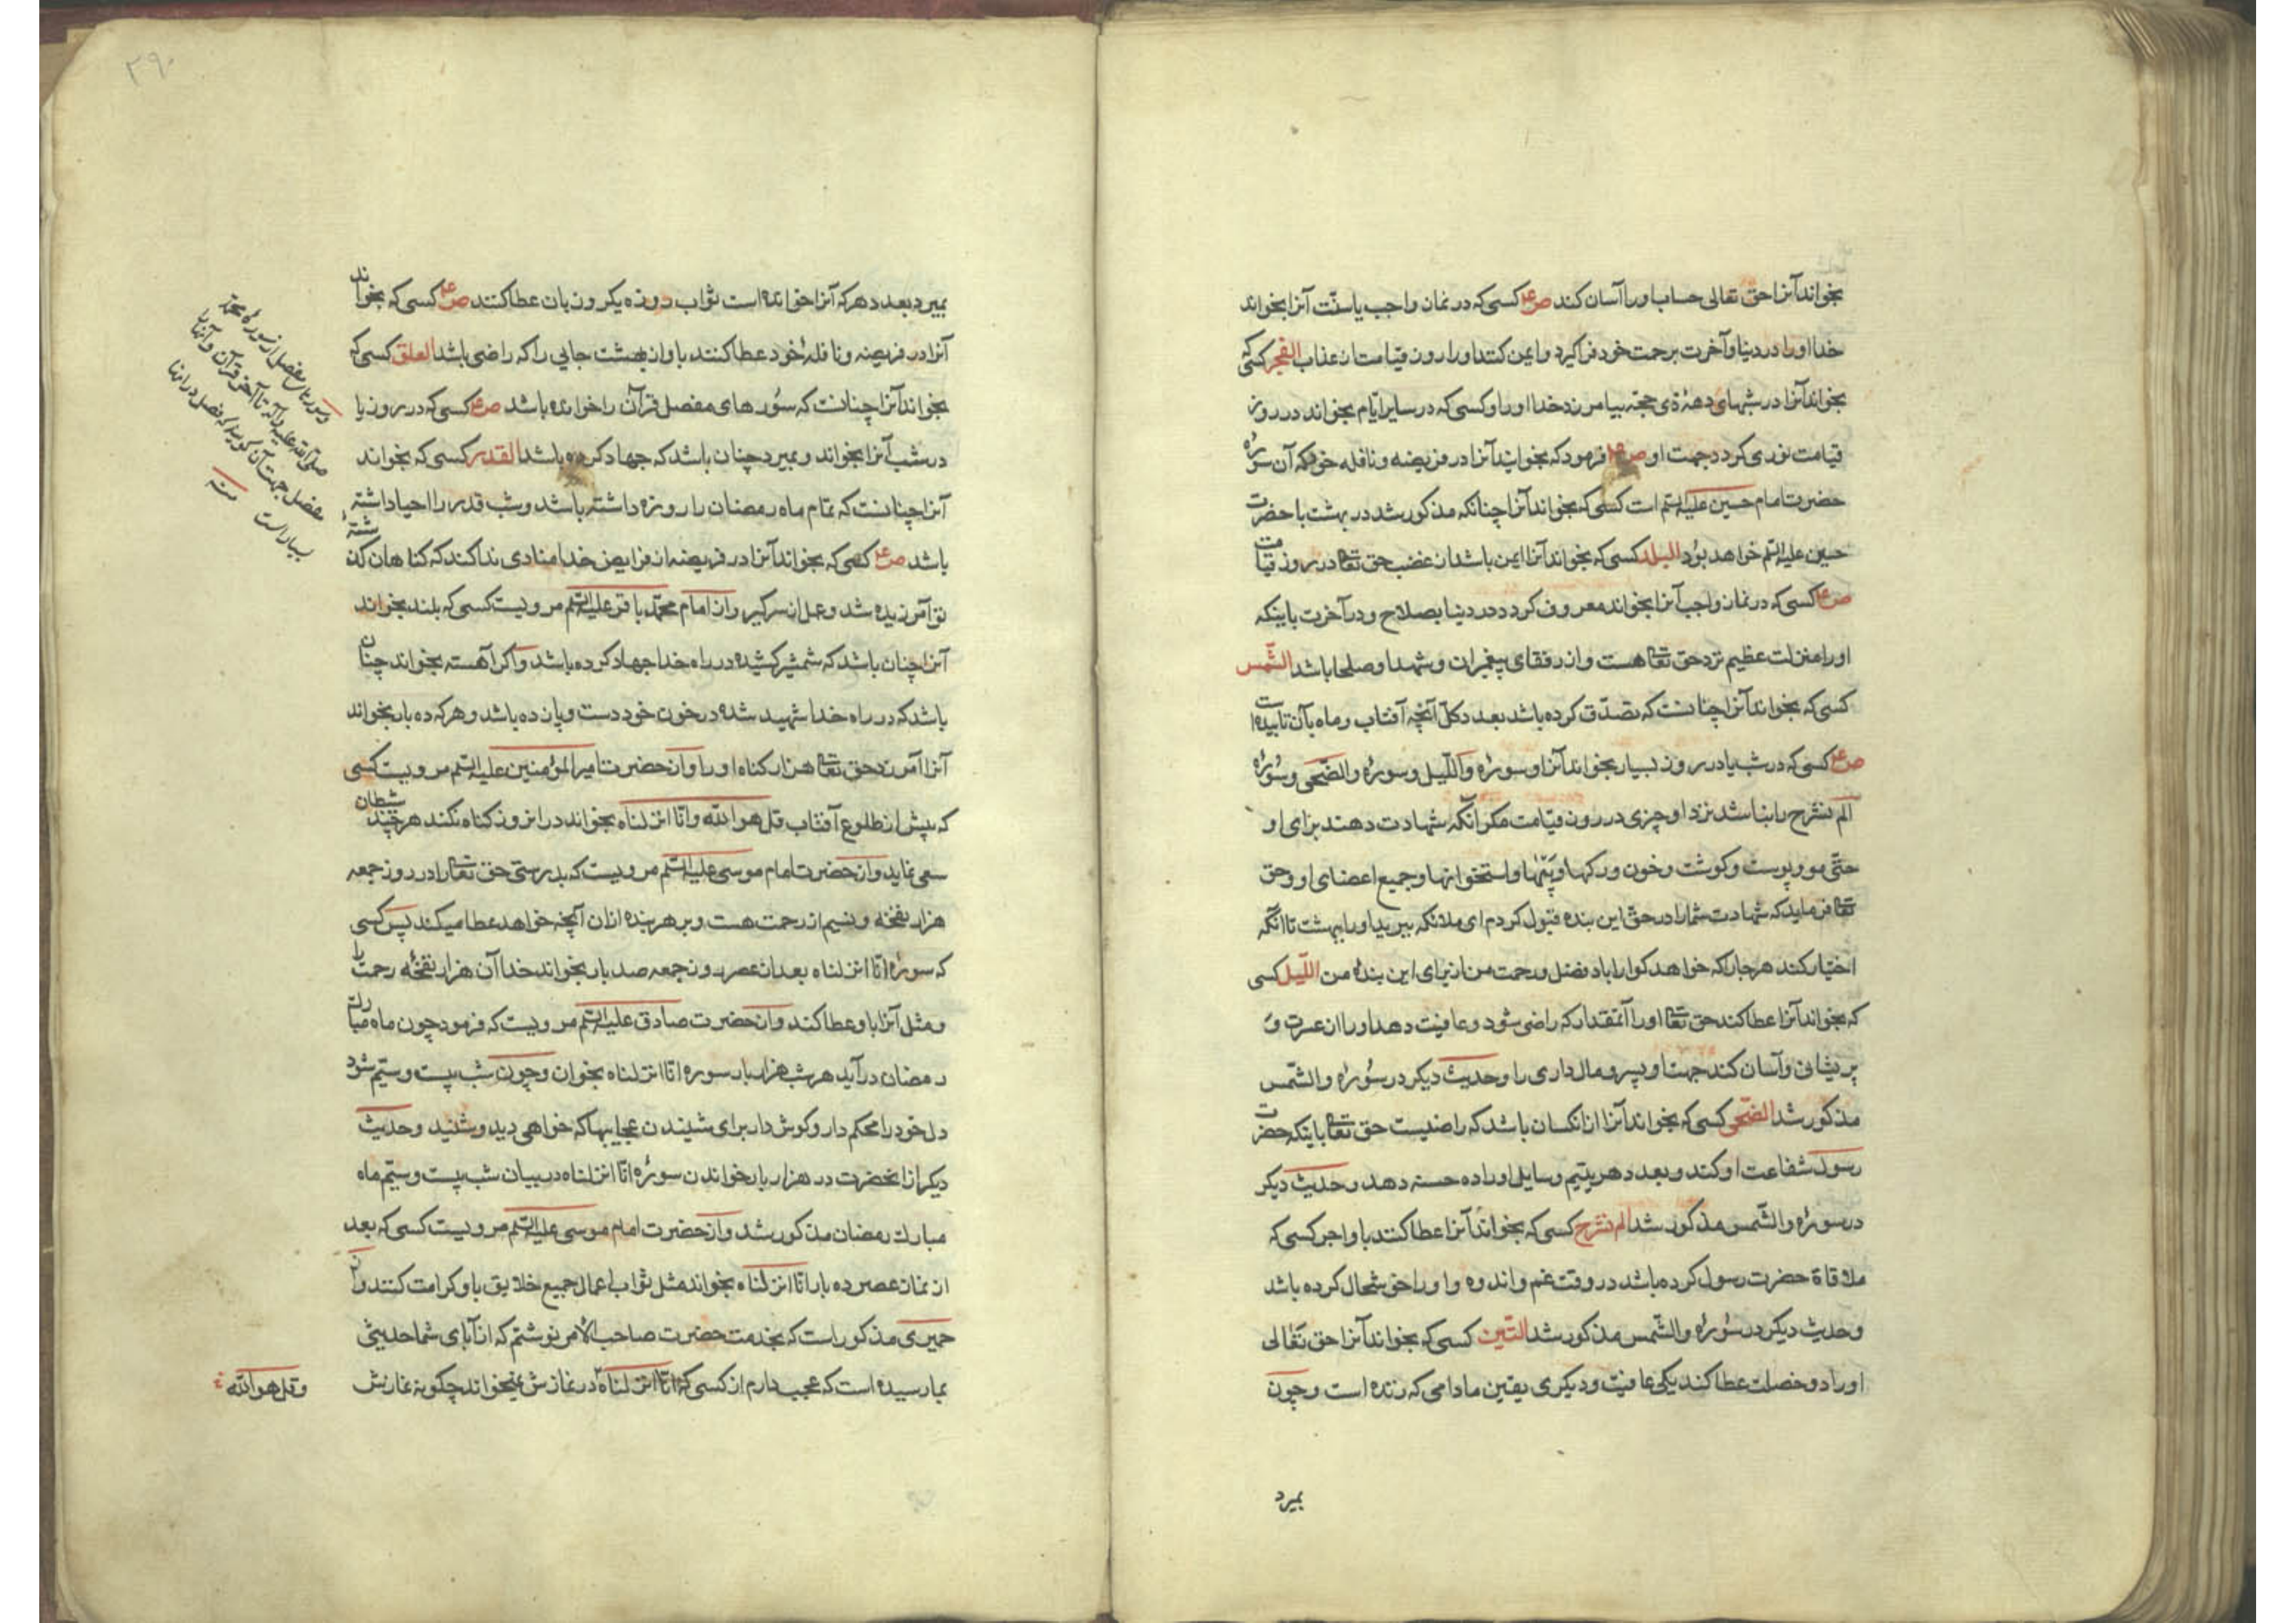 بخواند آنرا حق تعالی حساب او را آسان کند ص؏ کسی که در نماز واجب یا سنّت آنرا بخواند
خدا او را در دنیا و آخرت برحمت خود فرا گیرد و ایمن کند او را روز قیامت از عذاب الفجر کسی که
بخواند آنرا در شبهای دههٔ ذی حجّه بیامرزد خدا او را و کسی که در سایر ایّام بخواند در روز
قیامت نوری گردد جهت او ص؏ فرمود که بخوانید آنرا در فریضه و نافله خود که آن سورهٔ
حضرت امام حسین علیه السّلم است کسی که بخواند آنرا چنانکه مذکور شد در بهشت با حضرت
حسین علیه السّلم خواهد بود البلد کسی که بخواند آنرا ایمن باشد از غضب حق تعالی در روز قیامت
ص؏ کسی که در نماز واجب آنرا بخواند معروف گردد در دنیا بصلاح و در آخرت باینکه
او را منزلت عظیم نزد حق تعالی هست و از رفقای پیغمبران و شهدا و صلحا باشد الشّمس
کسی که بخواند آنرا چنانست که تصدّق کرده باشد بعدد کلّ آنچه آفتاب و ماه بآن تابیده است
ص؏ کسی که در شب یا در روز بسیار بخواند آنرا و سورهٔ واللّیل و سورهٔ والضّحی و سورهٔ
الم نشرح را نباشد نزد او چیزی در روز قیامت مگر آنکه شهادت دهند برای او
حتّی مو و پوست و گوشت و خون و رگها و پیّها و استخوانها و جمیع اعضای او و حق
تعالی فرماید که شهادت شما را در حقّ این بنده قبول کردم ای ملائکه ببرید او را ببهشت تا آنکه
اختیار کند هر جا را که خواهد گوارا باد فضل و رحمت من از برای این بندهٔ من اللّیل کسی
که بخواند آنرا عطا کند حق تعالی او را آنمقدار که راضی شود و عافیت دهد او را از عسرت و
پریشانی و آسان کند جهت او یسر و مال داری را و حدیث دیگر در سورهٔ والشّمس
مذکور شد الضّحی کسی که بخواند آنرا از انکسان باشد که راضیست حق تعالی باینکه حضرت
رسول شفاعت او کند و بعدد هر یتیم و سایلی او را ده حسنه دهد و حدیث دیگر
در سورهٔ والشّمس مذکور شد الم نشرح کسی که بخواند آنرا عطا کنند باو اجر کسی که
ملاقاة حضرت رسول کرده باشد در وقت غم و اندوه و او را خوشحال کرده باشد
و حدیث دیگر در سورهٔ والشّمس مذکور شد التّین کسی که بخواند آنرا حق تعالی
او را دو خصلت عطا کند یکی عافیت و دیگری یقین مادامی که زنده است و چون
بمیرد
۲۹۰
بمیرد بعدد هر که آنرا خوانده است ثواب روزه یکروز بان عطا کنند ص؏ کسی که بخواند
آنرا در فریضه و نافلهٔ خود عطا کنند باو از بهشت جایی را که راضی باشد العلق کسی که
بخواند آنرا چنانست که سور های مفصل قرآن را خوانده باشد ص؏ کسی که در روز یا
در شب آنرا بخواند و بمیرد چنان باشد که جهاد کرده باشد القدر کسی که بخواند
آنرا چنانست که تمام ماه رمضان را روزه داشته باشد و شب قدر را احیا داشته
باشد ص؏ کسی که بخواند آنرا در فریضه از فرایض خدا منادی ندا کند که گناهان گذشتهٔ
تو آمرزیده شد و عمل از سر گیر و از امام محمّد باقر علیه السّلم مرویست کسی که بلند بخواند
آنرا چنان باشد که شمشیر کشیده در راه خدا جهاد کرده باشد و اگر آهسته بخواند چنان
باشد که در راه خدا شهید شده در خون خود دست و پا زده باشد و هر که ده بار بخواند
آنرا آمرزد حق تعالی هزار گناه او را و از حضرت امیرالمؤمنین علیه السّلم مرویست کسی
که پیش از طلوع آفتاب قل هو الله و انّا انزلناه بخواند در انروز گناه نکند هر چند شیطان
سعی نماید و از حضرت امام موسی علیه السّلم مرویست که بدرستی حق تعالی را در روز جمعه
هزار نفخه و نسیم از رحمت هست و بر هر بنده ازان آنچه خواهد عطا میکند پس کسی
که سورهٔ انّا انزلناه بعد از عصر روز جمعه صد بار بخواند خدا آن هزار نفخهٔ رحمت را
و مثل آنرا باو عطا کند و از حضرت صادق علیه السّلم مرویست که فرمود چون ماه مبارك
رمضان در آید هر شب هزار بار سوره انّا انزلناه بخوان و چون شب بیست و سیّم شود
دل خود را محکم دار و گوش دار برای شنیدن عجایبها که خواهی دید و شنید و حدیث
دیگر از انحضرت در هزار بار خواندن سورهٔ انّا انزلناه در بیان شب بیست و سیّم ماه
مبارك رمضان مذکور شد و از حضرت امام موسی علیه السّلم مرویست کسی که بعد
از نماز عصر ده بار انّا انزلناه بخواند مثل ثواب اعمال جمیع خلایق باو کرامت کنند و از
حمیری مذکور است که بخدمت حضرت صاحب الأمر نوشتم که از آبای شما حدیثی
بما رسیده است که عجب دارم از کسی که انّا انزلناه در نمازش نمیخواند چگونه نمازش
و قل هو الله
صلّی الله علیه و آله تا آخر قرآن و آنها را
مفصل جهت آن گویند که فصل در انها
بسیار است منه